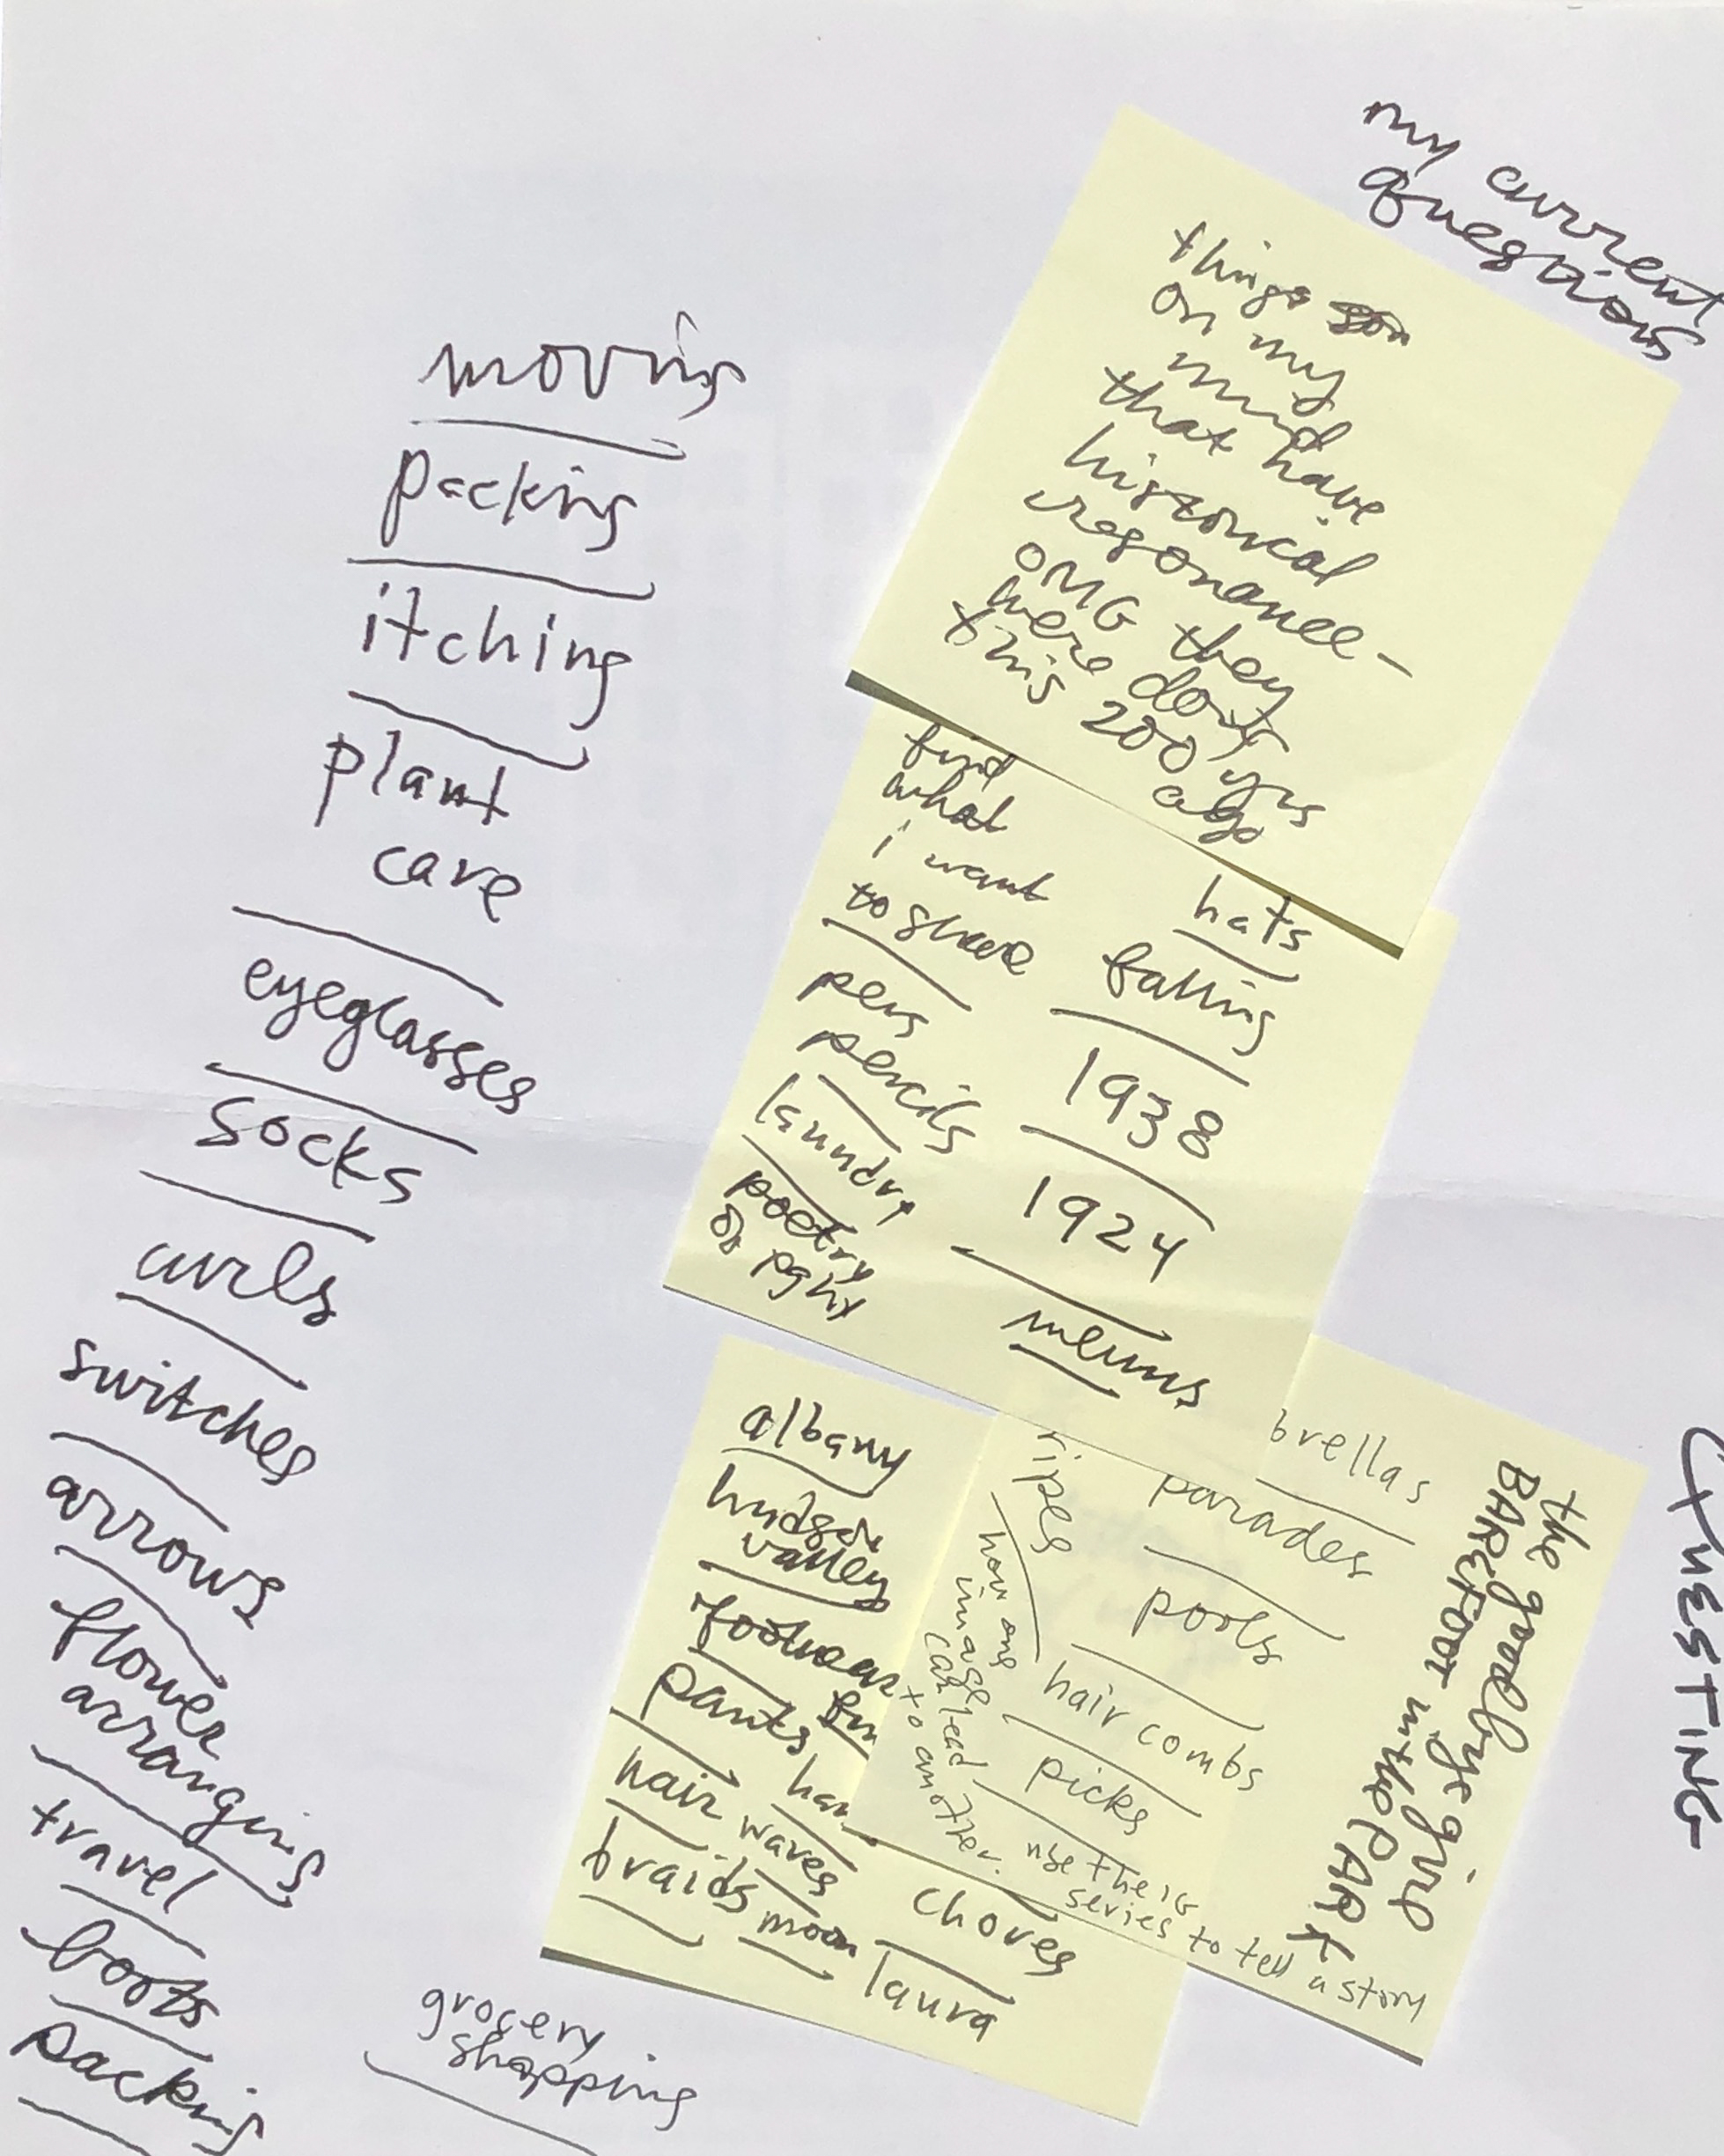 my current
questions
things
on my
mind
that have
historical
resonance -
OMG they
were doing
this 200 yrs
ago
moving
packing
itching
plant
care
eyeglasses
socks
curls
switches
arrows
flower
arranging
travel
boots
packing
grocery
shopping
find
what
i want
to share
pens
pencils
laundry
poetry
on pghy
hats
falling
1938
1924
menus
albany
hudson
valley
footwear
pants
hair
waves
braids
moon
chores
laura
ripes
how one
image
can lead
to another.
brellas
parades
pools
hair combs
picks
use the IG
series to tell a story
the goodbye girl
BAREFOOT in the PARK
QUESTING